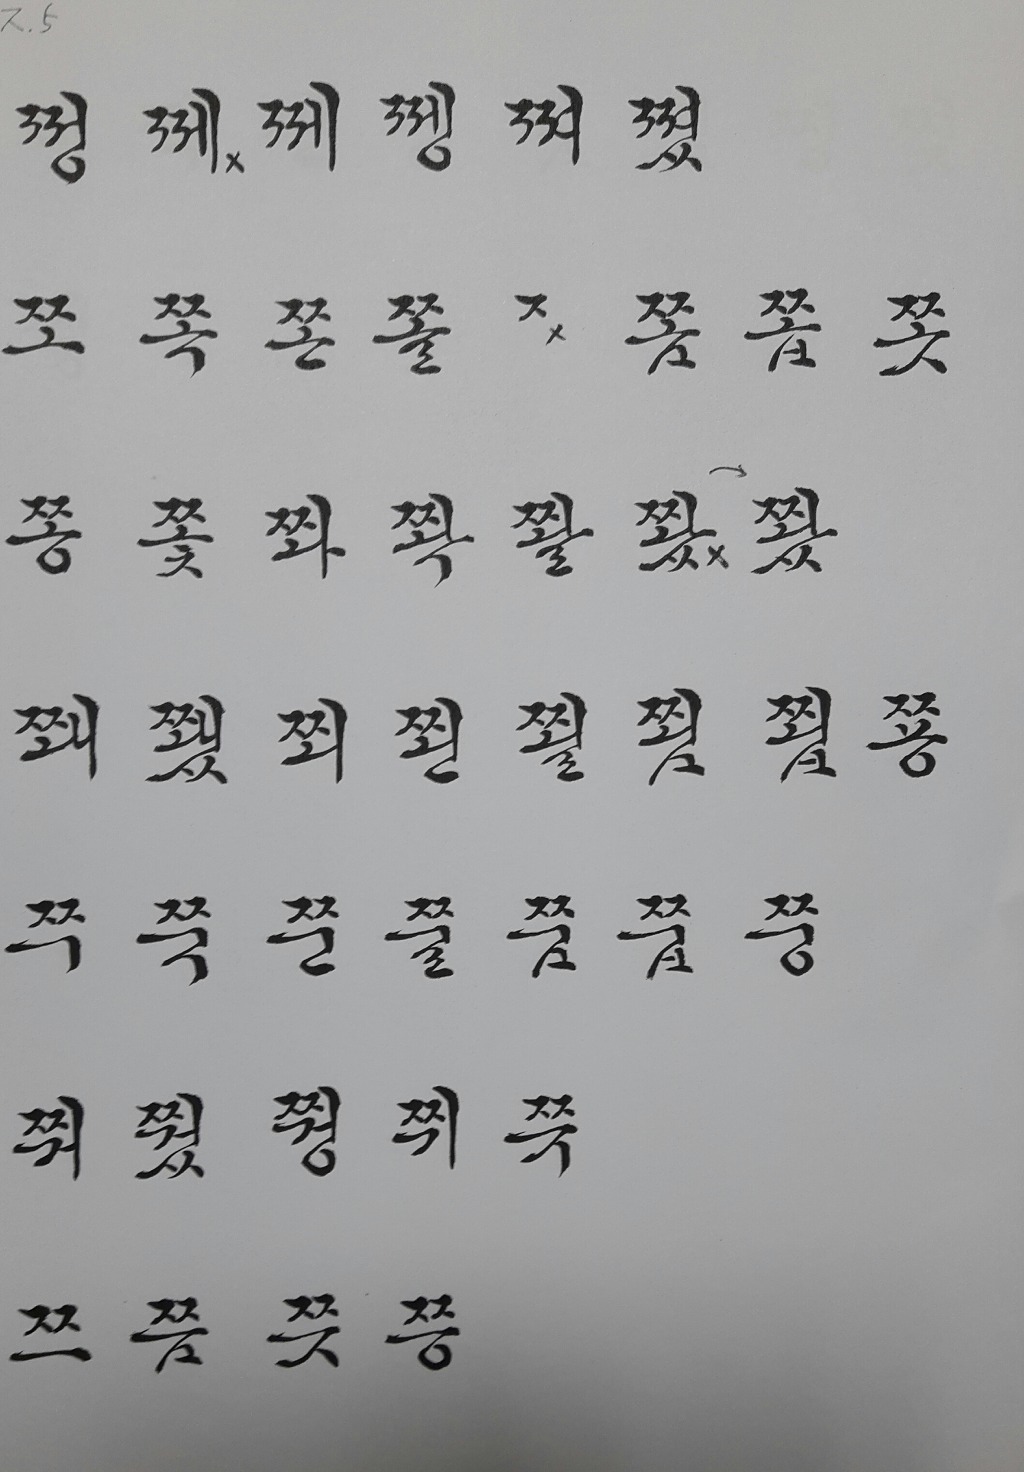 ㅈ.5
쩡 쩨x 쩨 쩽 쪄 쪘
쪼 쪽 쫀 쫄 ㅈx 쫌 쫍 쫏
쫑 쫓 쫘 쫙 쫠 쫬x → 쫬
쫴 쬈 쬐 쬔 쬘 쬠 쬡 쭁
쭈 쭉 쭌 쭐 쭘 쭙 쭝
쭤 쭸 쭹 쮜 쮸
쯔 쯤 쯧 쯩